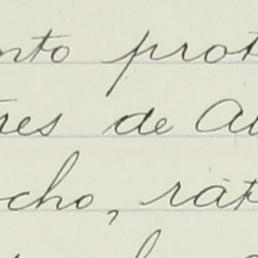 nto prot
res de Al
cho, rát